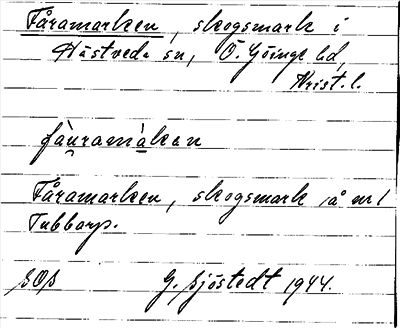 Fåramarken, skogsmark i
Hästveda sn, Ö. Göinge hd,
Krist. l.
fàuramàken
Fåramarken, skogsmark å nr 1
Tubbarp.
G. Sjöstedt 1944.